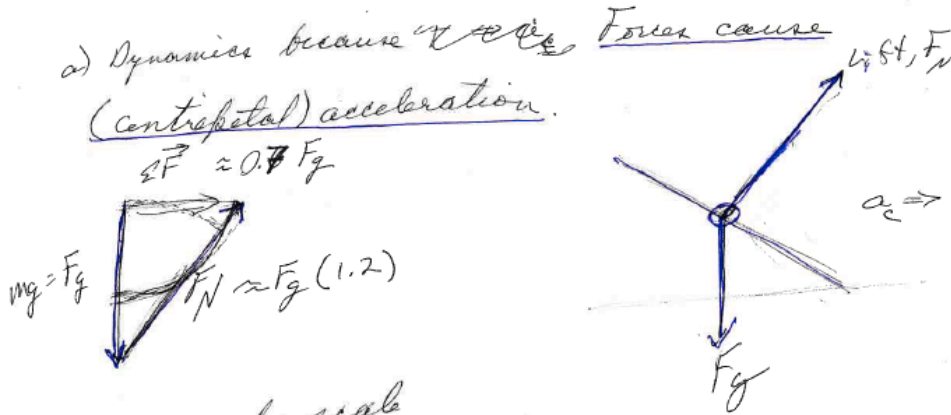 a) Dynamics because Forces cause
(centripetal) acceleration.
ΣF⃗ ≈ 0.7 Fg
Lift, FN
ac ⇒
mg = Fg
FN ≈ Fg (1.2)
Fg
scale